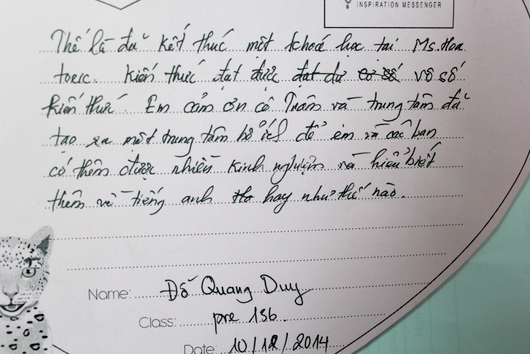 INSPIRATION MESSENGER
Thế là đã kết thúc một khoá học tại Ms. Hoa
toeic. Kiến thức đạt được đạt dự cơ số vô số
kiến thức. Em cảm ơn cô Trâm và trung tâm đã
tạo ra một trung tâm bổ ích để em và các bạn
có thêm được nhiều kinh nghiệm và hiểu biết
thêm về tiếng anh thơ hay như thế nào.
Name: Đỗ Quang Duy
Class: pre 136
Date: 10/12/2014